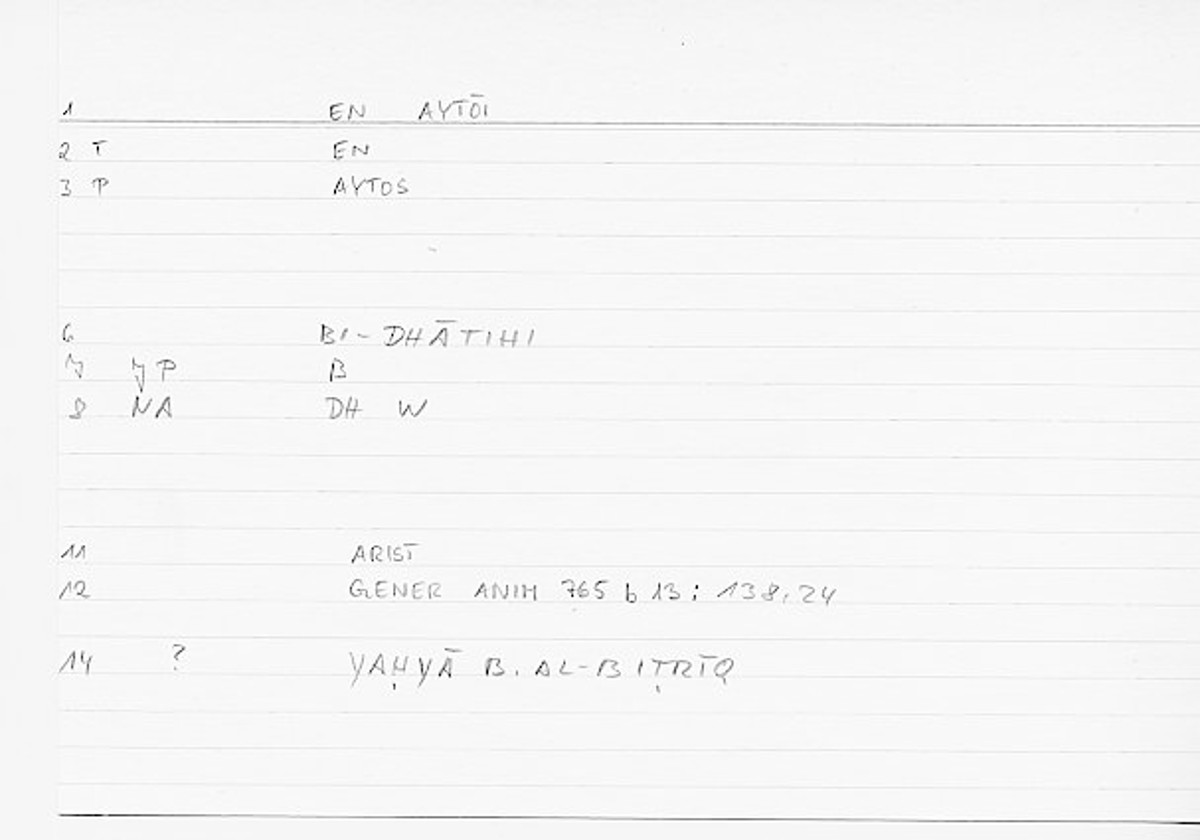 1 EN AYTŌI
2 T EN
3 P AYTOS
6 BI-DHĀTIHI
7 JP B
8 NA DH W
11 ARIST
12 GENER ANIM 765 b 13 : 138,24
14 ? YAḤYĀ B. AL-BIṬRĪQ